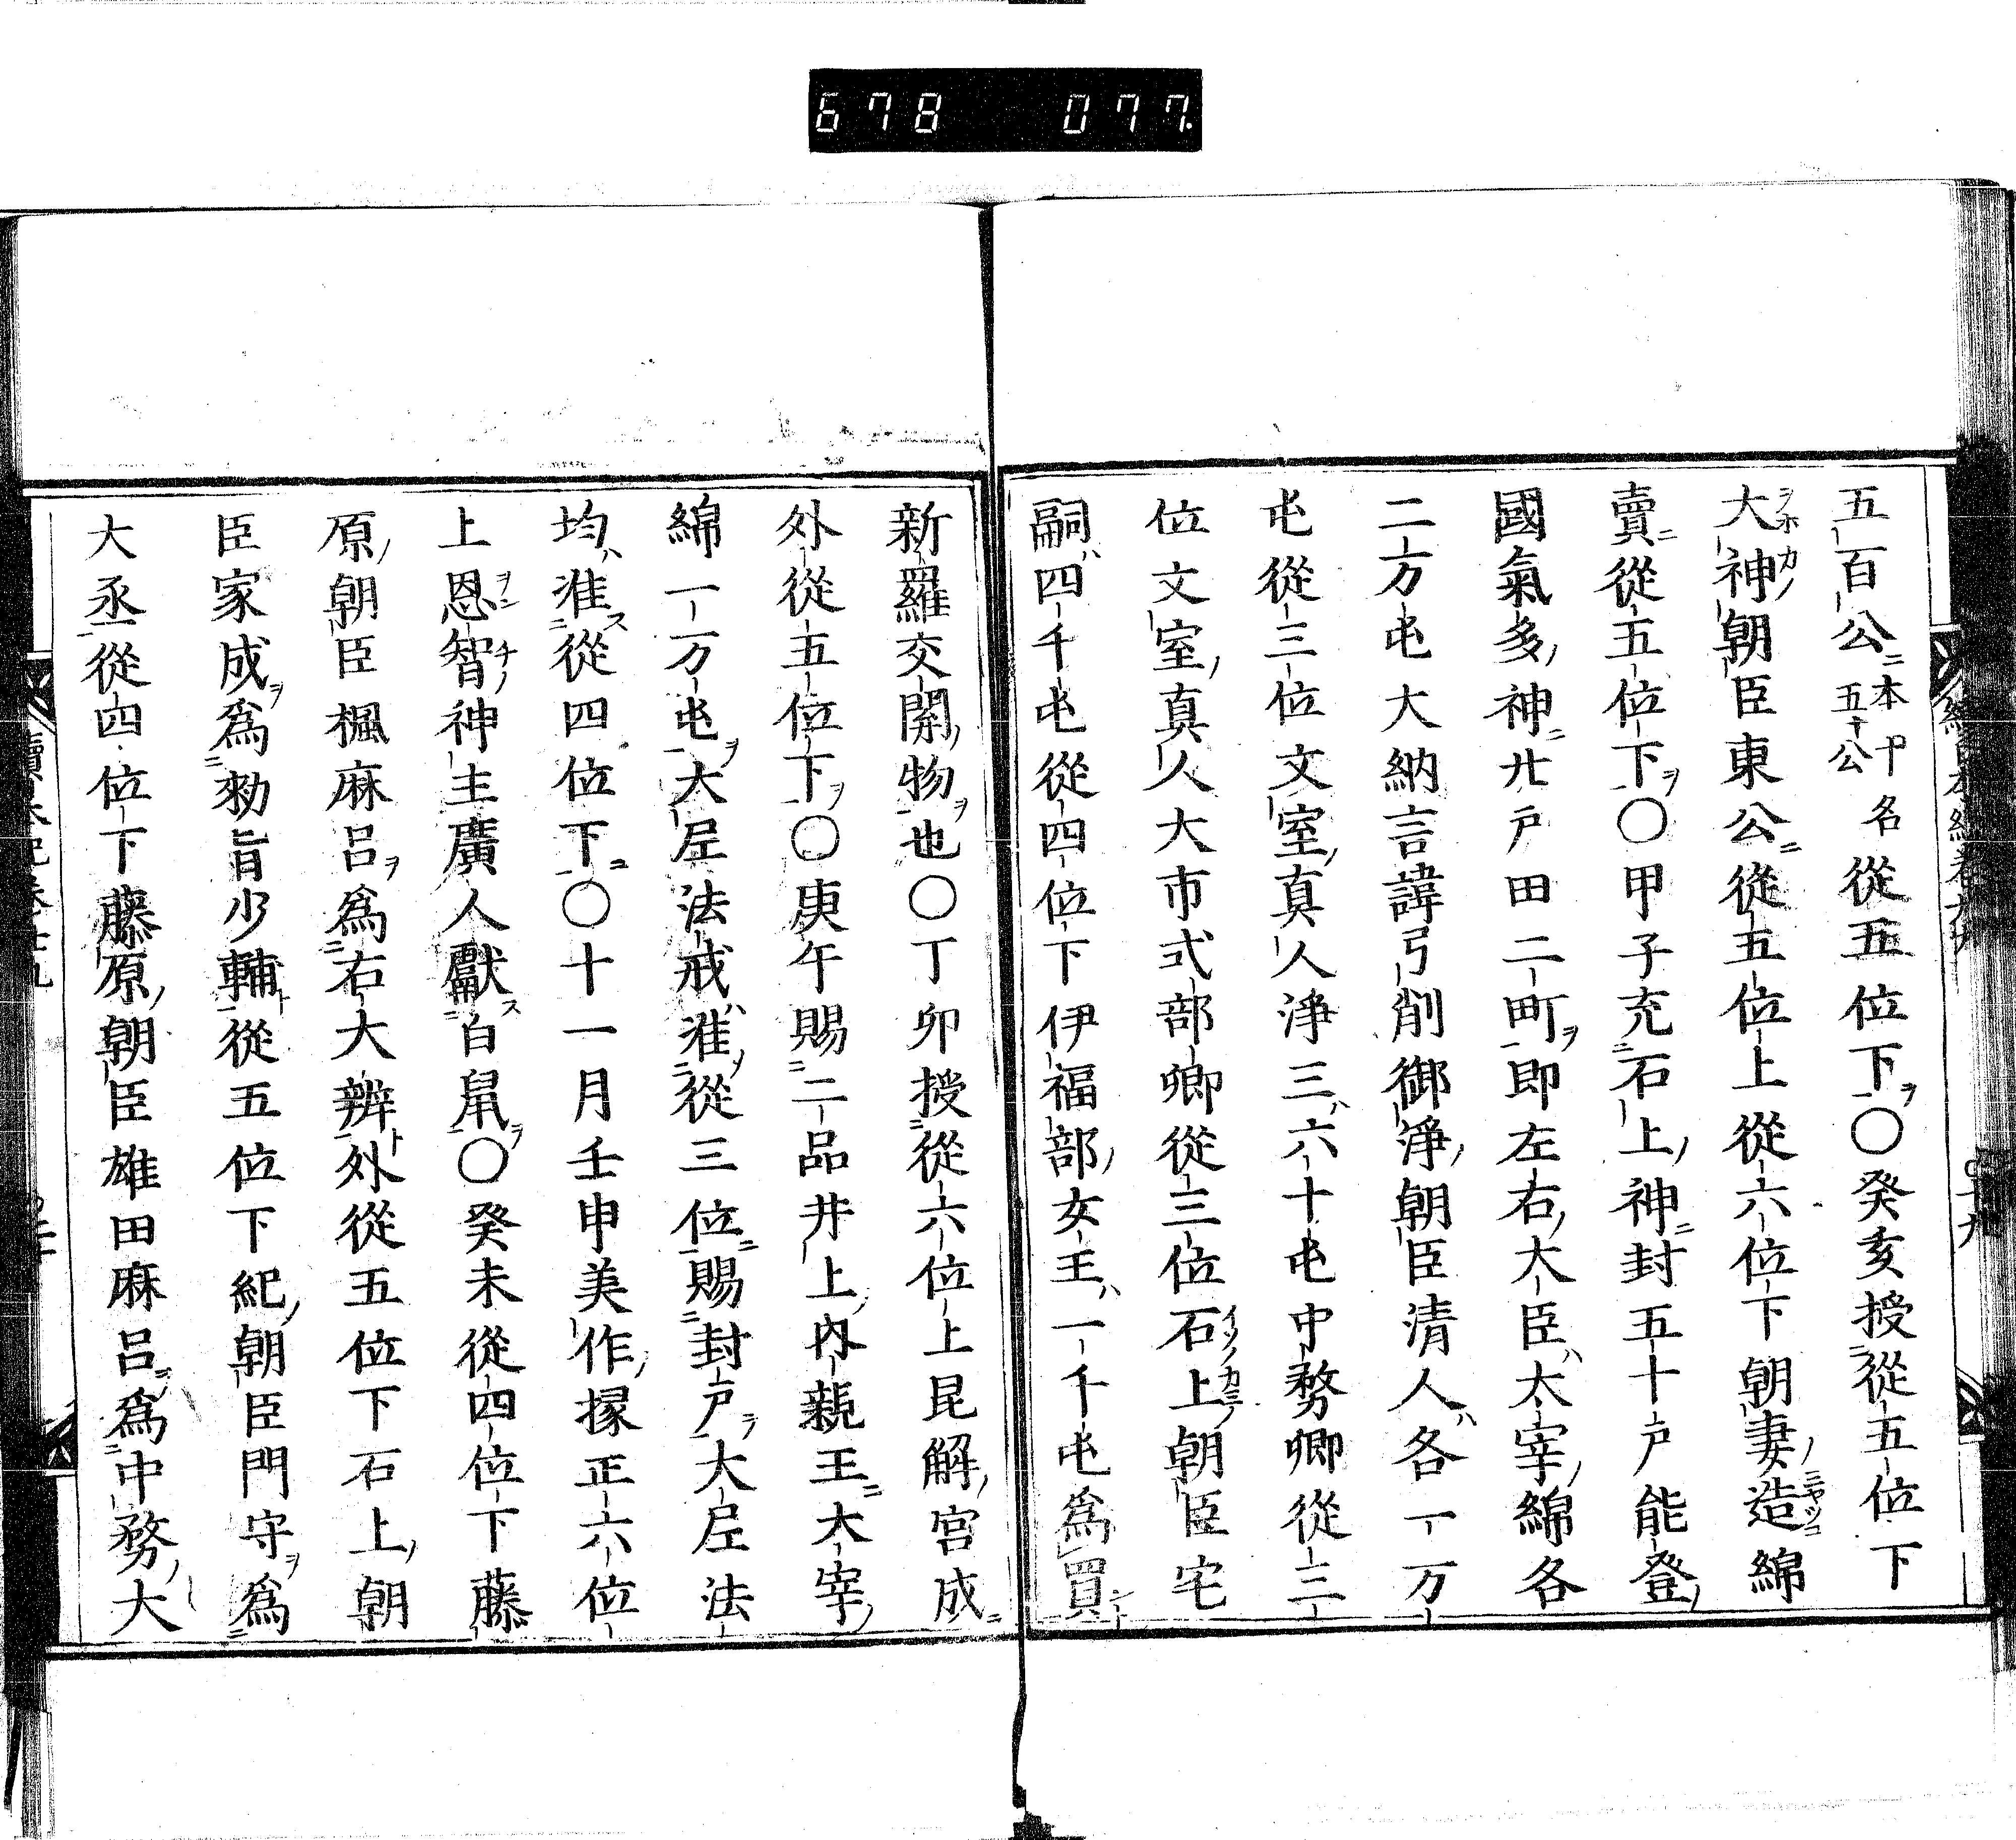 678 077
五百公本ノマヽ名五十公從五位下〇癸亥授從五位下
大神朝臣東公從五位上從六位下朝妻造綿
賣從五位下〇甲子充石上神封五十戸能登
國氣多神廿戸田二町即左右大臣太宰綿各
二万屯大納言諱弓削御淨朝臣清人各一万
屯從三位文室真人淨三六十屯中務卿從三
位文室真人大市式部卿從三位石上朝臣宅
嗣四千屯從四位下伊福部女王一千屯爲買
新羅交関物也〇丁卯授從六位上昆解宮成
外從五位下〇庚午賜二品井上内親王太宰
綿一万屯大尼法戒准從三位賜封戸大尼法
均准從四位下〇十一月壬申美作掾正六位
上恩智神主廣人獻白鼠〇癸未從四位下藤
原朝臣楓麻呂爲右大辨外從五位下石上朝
臣家成爲勅旨少輔從五位下紀朝臣門守爲
大丞從四位下藤原朝臣雄田麻呂爲中務大